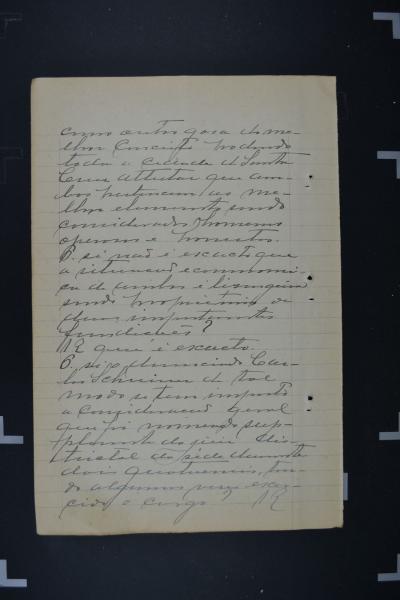 como outro gosa do me-
lhor conceito podendo
toda a cidade de Santa
Cruz attestar que am-
bos pertencem ao me-
lhor elemento sendo
considerados homens
operosos e honestos.
P. si não é exacto que
a situacao economomi-
ca de ambos é lisongeira
sendo proprietarios de
duas importantes
fundições?
R que é exacto.
P. si o denunciado Car-
los Schreiner de tal
modo se tem imposto
a consideracao geral
que foi nomeado sup-
plente do juiz dis-
trictal da séde durante
dois quatriennios, ten-
do algumas vezes exer-
cido o cargo? R